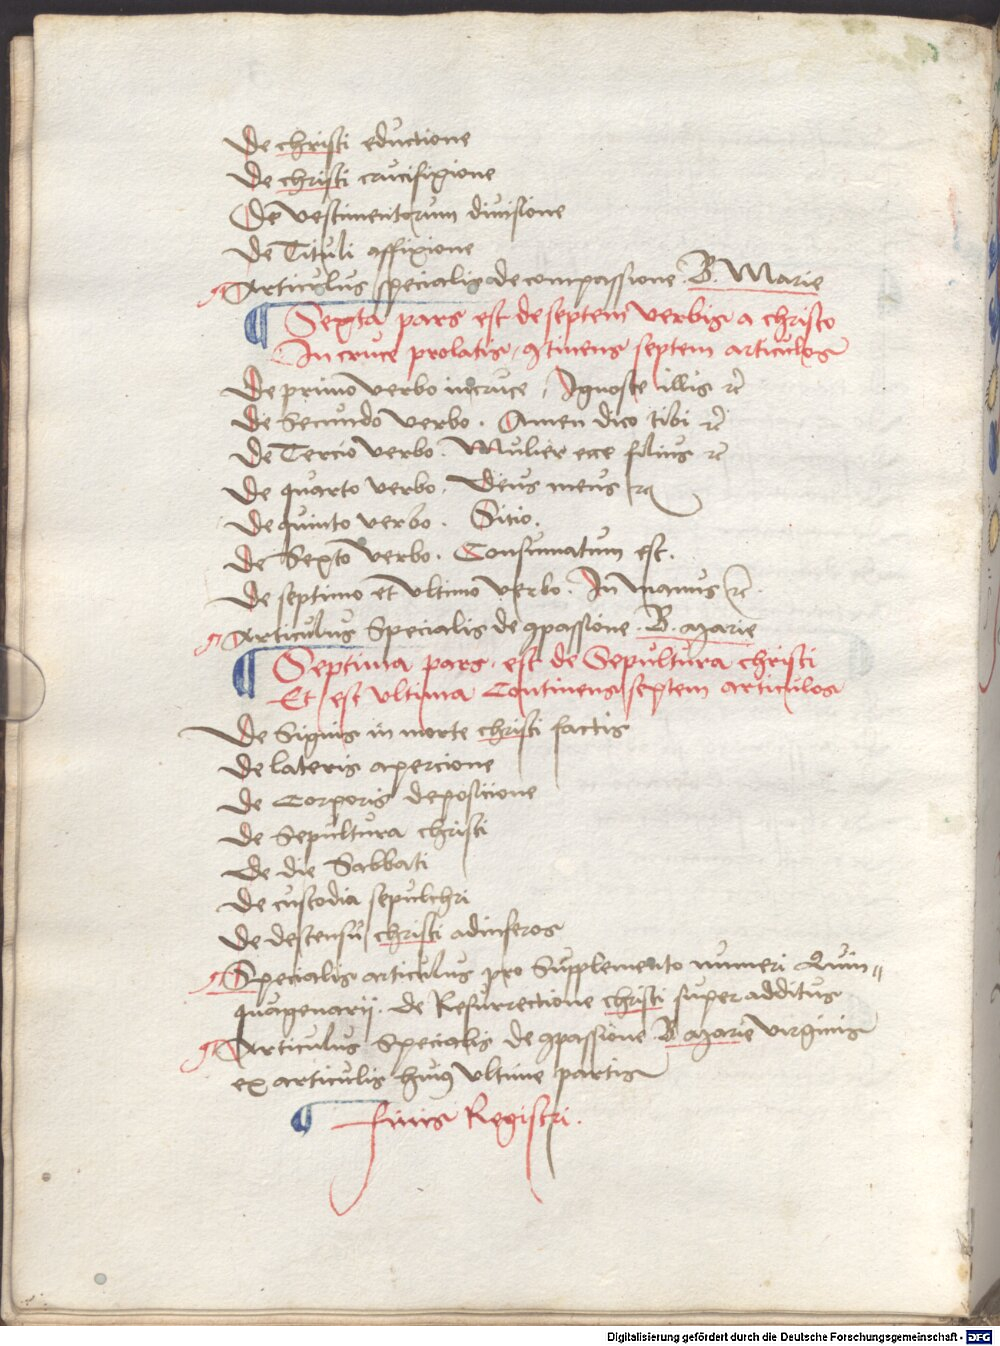 De christi eductione
De christi crucifixione
De vestimentorum divisione
De Tituli affixione
Articulus specialis de compassione B. Marie
¶ Sexta pars est de septem verbis a christo
In cruce prolatis, ꝯtinens septem articulos
De primo verbo in cruce, Ignosce illis ⁊c̄
De Secundo verbo. Amen dico tibi ⁊c̄
De Tercio verbo. Mulier ecce filius ⁊c̄
De quarto verbo. Deus meus ⁊c̄
De quinto verbo. Sitio.
De Sexto verbo. Consummatum est.
De septimo et ultimo verbo. In manus ⁊c̄.
Articulus Specialis de ꝯpassione. B. Marie
¶ Septima pars. est de Sepultura christi
Et est ultima Continens septem articulos
De Signis in morte christi factis
De lateris apercione
De Corporis deposicione
De Sepultura christi
De die Sabbati
De custodia sepulchri
De descensu christi ad inferos
Specialis articulus pro Supplemento numeri Quin⸗
quagenarij. de Resurrectione christi super additus
Articulus Specialis de ꝯpassione B Marie virginis
ex articulis huiꝰ ultime partis
¶ Finis Registri.
Digitalisierung gefördert durch die Deutsche Forschungsgemeinschaft - DFG